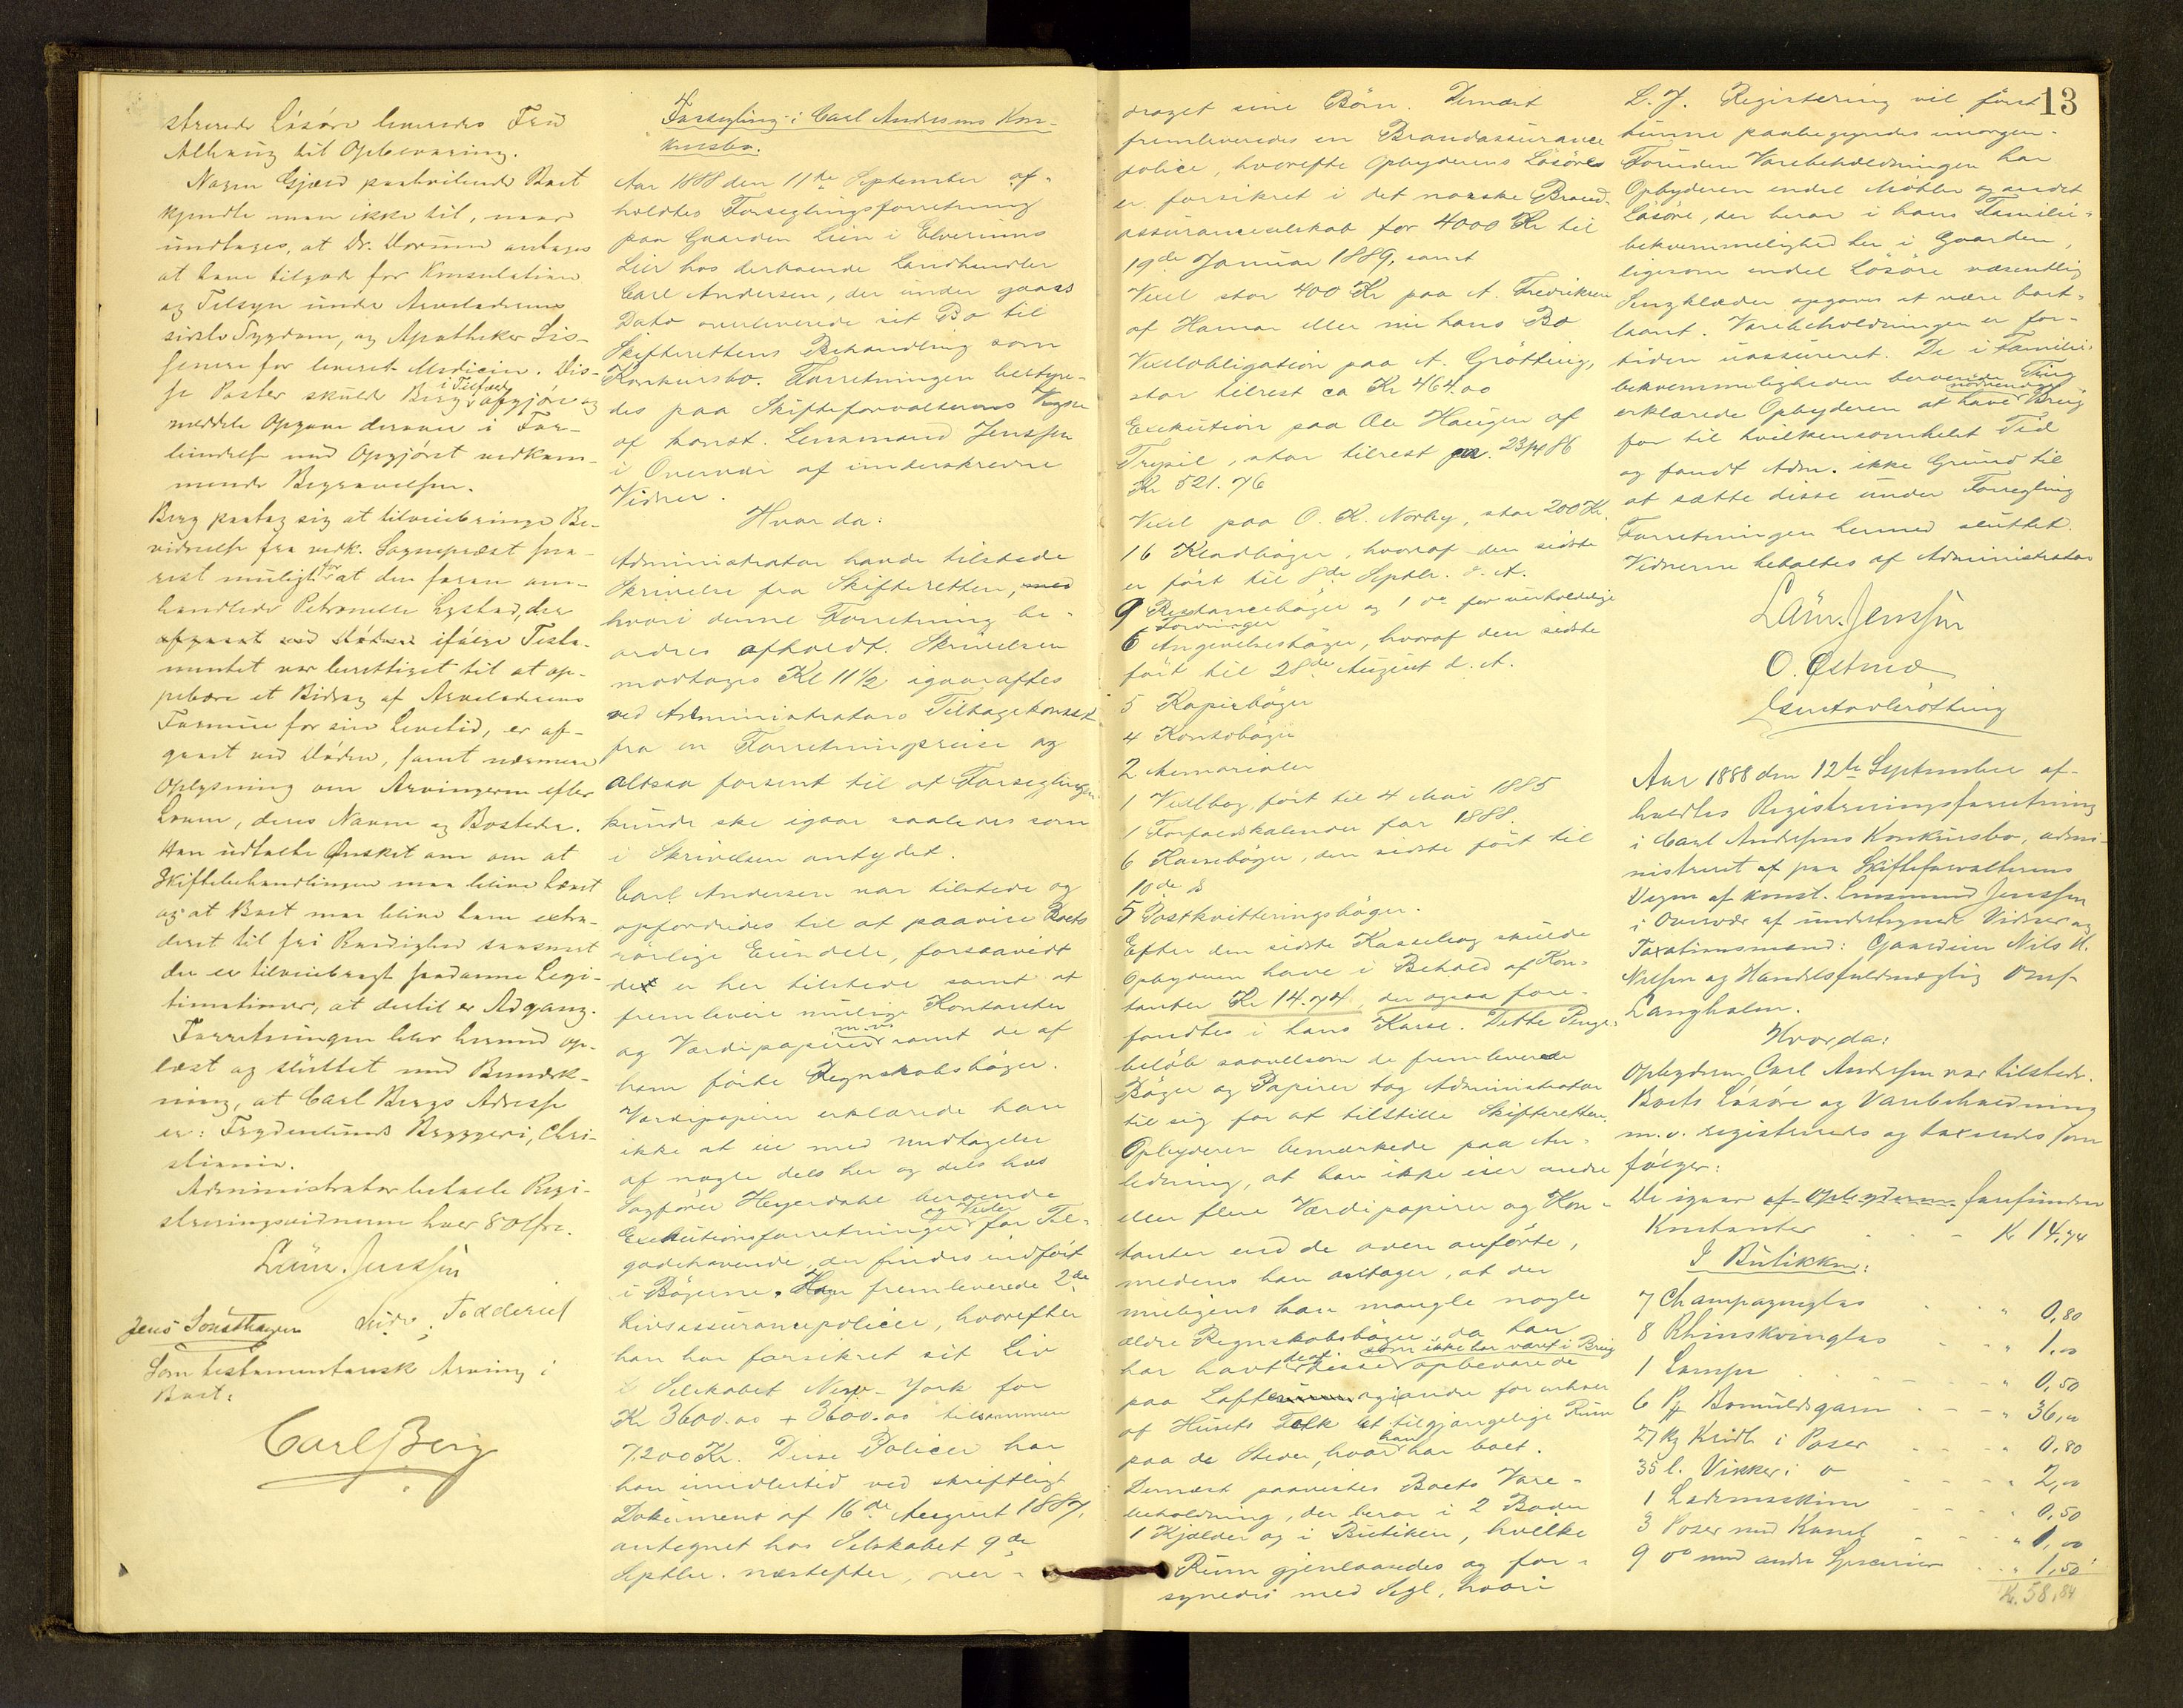 strerede Løsøre leveredes Frú
til Opbevaring.
Nogen Gjæld paahvilende Boet
kjendte man ikke til, naar
úndtages, at Dr. antages
at have tilgode for Konsulation
og Tilsyn únder Arveladerens
sidste Sygdom, og Apotheker Lis-
for leveret Medicin. Dis-
se Poster skúlde Berg i Tilfælde afgjøre og
meddele Opgave derover i For-
bindelse med Opgjøret vedkom-
mende Begravelsen.
Berg paatog sig at tilveiebringe Be-
vidnelse fra vedk. Sogneprest sna-
rest múligt for at den foran om-
handlede Petronelle Lystad, der
afgaaet ved Døden ifølge Testa-
mentet var berettiget til at op-
pebære et Bidrag af Arveladerens
Formúe for sin Levetid, er af-
gaaet ved Døden, samt nærmere
Oplysning om Arvingerne efter
Loven, deres Navne og Bosteder.
Han údtalte Ønsket om om at
Skiftebehandlingen maa blive
og at Boet maa blive ham extra-
deret til fri Raadighed saasnart
der er tilveiebragt saadanne Legi-
timationer, at dertil er Adgang.
Forretningen blev hermed op-
læst og slúttet med Bemærk-
ning, at Carl Bergs Adresse
er: Frydenlúnds Bryggeri, Chri-
stiania.
Administrator betalte Regi-
streringsvidnerne hver 80 Øre.
Laúr. Jenssen
Jens
Som testamentarisk Arving i
Boet:
Carl Berg
Forsegling i Carl Andersens Kon-
kursbo.
Aar 1888 den 11te September af-
holdtes Forseglingsforretning
paa Gaarden Lien i Elverúms
Lier hos derboende Landhandler
Carl Andersen, der únder gaars
Dato overleverede sit Bo til
Skifterettens Behandling som
Konkursbo. Forretningen bestyre-
des paa Skifteforvalterens Vegne
af konst. Lensmand Jenssen
i Overvær af únderskrevne
Vidner.
Hvor da:
Administrator havde tilstede
Skrivelse fra Skifteretten, med
hvori denne Forretning be-
ordres afholdt. Skrivelsen
modtages Kl 11 1/2 igaaraftes
ved Administrators Tilbagekomst
fra en Forretningsreise og
altsaa forsent til at Forseglingen
kúnde ske igaar saaledes som
i Skrivelsen antydet.
Carl Andersen var tilstede og
opfordredes til at paavise Boets
rørlige Eiendele, forsaavidt
det er her tilstede samt at
fremlevere múlige Kontanter
og Værdipapirer m.v. samt de af
ham førte Regnskabsbøger.
Værdipapirer erklærede han
ikke at eie med Undtagelse
af nogle dels her og dels hos
Sagfører Heyerdahl beroende
Exekútionsforretninger og Vexler for Til-
godehavende, der findes indført
i Bøgerne. Han fremleverede 2de
Livsassúrancepolicer, hvorefter
han har forsikret sit Liv
i Selskabet New-York for
Kr 3600.00 + 3600.00 tilsammen
7,200 Kr. Disse Policer har
han imidlertid ved skriftligt
Dokúment af 16de Aúgúst 1887,
antegnet hos Selskabet 9de
Septbr. næstefter, over-
draget sine Børn. Dernæst
fremleveredes en Brandassúrance
police, hvorefter Opbyderens Løsøre
er forsikret i det norske Brand-
assúranceselskab for 4000 Kr til
19de Janúar 1889, samt
Vexel stor 400 Kr paa A. Fredriksen
af Hamar eller nú hans Bo
Vexelobligation paa A. Grøtting,
stor tilrest ca Kr 464.00
Exekútion paa Ole Haúgen af
Trysil, stor tilrest pr. 23/4 86
Kr 521.76
Vexel paa O. K. Norby, stor 200 Kr
16 Kladbøger, hvoraf den sidste
er ført til 8de Septbr. d. A.
9 Restancebøger og 1 do for úerholdelige
Fordringer
6 Angivelsesbøger, hvoraf den sidste
ført til 28de Aúgúst d. A.
5 Kopiebøger
4 Kontobøger
2 Memorialer
1 Vexelbog, ført til 4 Mai 1885
1 Forfaldskalender for 1888.
6 Kassebøger, den sidste ført til
10de ds
5 Postkvitteringsbøger.
Efter den sidste Kassebog skúlde
Opbyderen have i Behold af Kon-
tanter Kr 14.74, der ogsaa fore-
fandtes i hans Kasse. Dette Penge-
beløb saavelsom de fremleverede
Bøger og Papirer tog Administrator
til sig for at tilstille Skifteretten.
Opbyderen bemærkede paa An-
ledning, at han ikke eier andre
eller flere Værdipapirer og Kon-
tanter end de oven anførte,
medens han antager, at der
múligens kan mangle nogle
ældre Regnskabsbøger, da han
har havt deraf disse som ikke har været i Brúg opbevarede
paa Loftet og i andre for enhver
af Húsets Folk let tilgjængelige Rúm
paa de Steder, hvor han har boet.
Dernæst paavistes Boets Vare-
beholdning, der beror i 2 Boder
1 Kjælder og i Bútiken, hvilke
Rúm gjenlaasedes og for-
synedes med Segl, hvori
13
L. J. Registering vil først
kúnne paabegyndes imorgen.
Forúden Varebeholdningen har
Opbyderen endel Møbler og andet
Løsøre, der beror i hans Familie-
bekvemmelighed her i Gaarden,
ligesom endel Løsøre væsentlig
Sengklæder opgaves at være bort-
laant. Varebeholdningen er for-
tiden úassúreret. De i Familie-
bekvemmeligheden beroende Ting
erklærede Opbyderen at have nødvendige Brúg
for til hvilkensomhelst Tid
og fandt Adm. ikke Grúnd til
at sætte disse únder Forsegling
Forretningen hermed slúttet.
Vidnerne betaltes af Administrator
Laúr. Jenssen
O. Østmo
Gústav Grøtting
Aar 1888 den 12te September af-
holdtes Registreringsforretning
i Carl Andersens Konkúrsbo, admi-
nistreret af paa Skifteforvalterens
Vegne af konst. Lensmand Jenssen
i Overvær af úndertegnede Vidner og
Taxationsmænd: Gaardeier Nils N.
Nilsen og Handelsfúldmægtig Olúf
Langholm.
Hvor da:
Opbyderen Carl Andersen var tilstede.
Boets Løsøre og Varebeholdning
m.v. registreredes og taxeredes som
følger:
De igaar af Opbyderen forefúndne
Kontanter - - - Kr 14,74
I Bútikken:
7 Champagneglas - - - " 0,80
8 Rhinskvinglas - - - " 1,00
1 Lampe - - - " 0,50
6 Pk Bomúldsgarn - - - " 36,00
27 Kg Kridt i Poser - - - " 0,80
35 l. Vikker i do - - - " 2,00
1 Lademaskine - - - " 0,50
3 Poser med Kanel - - - " 1,00
9 do med andre Specerier - - - " 1,50
Kr. 58,84